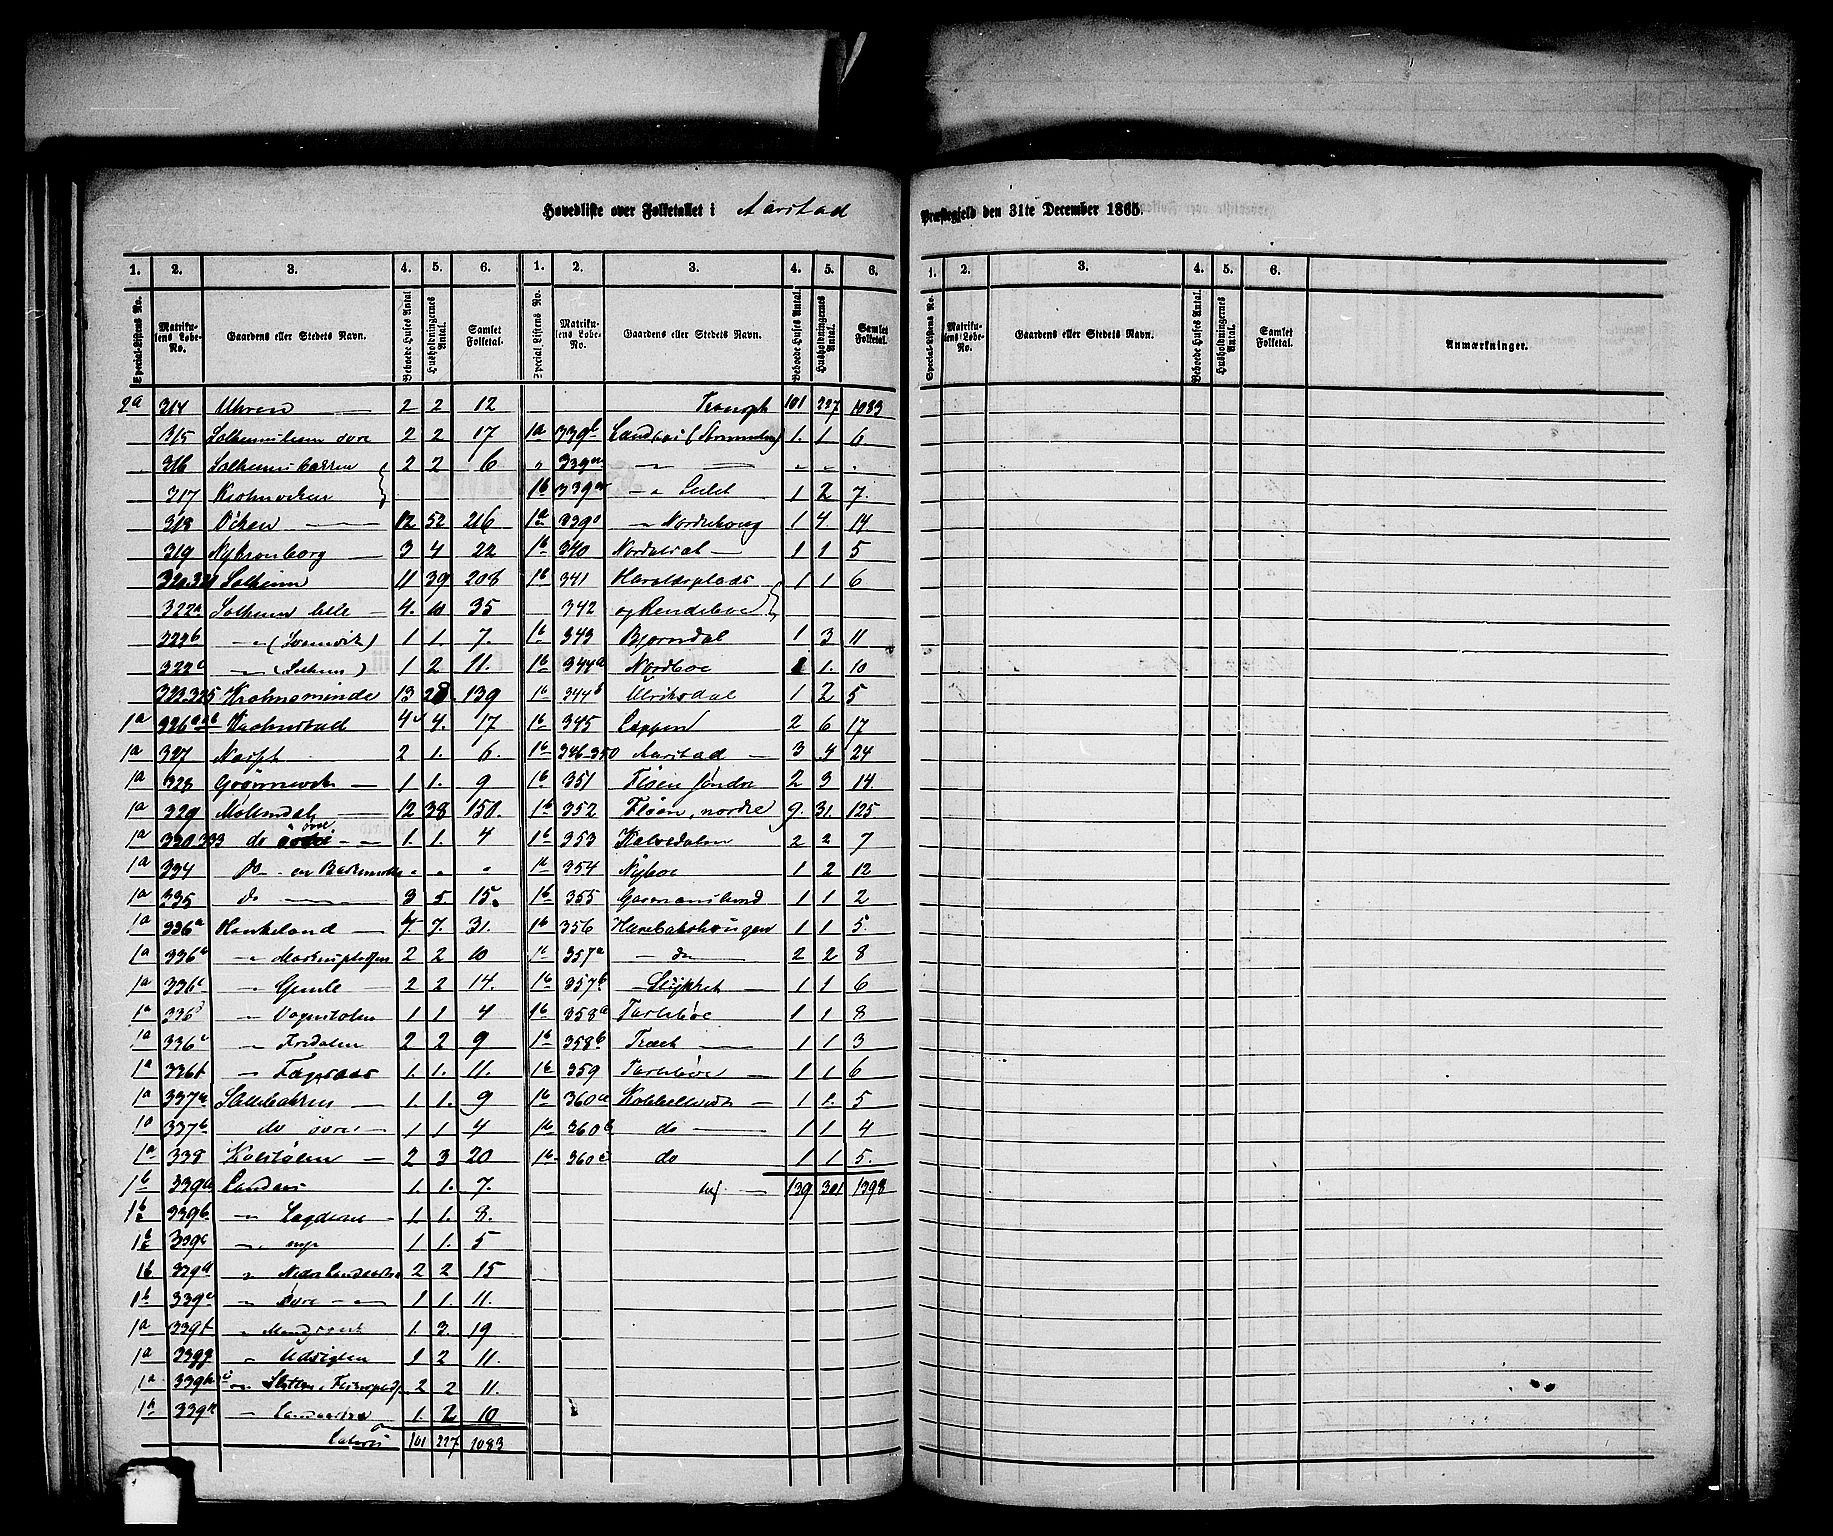 Hovedliste over Folketallet i Aarstad Præstegjeld den 31te December 1865.
1. 2. 3. 4. 5. 6. 1. 2. 3. 4. 5. 6.
Special-Listens No. Matrikulens Løbe-No. Gaardens eller Stedets Navn. Beboede Huses Antal. Husholdningernes Antal. Samlet Folketal. Special-Listens No. Matrikulens Løbe-No. Gaardens eller Stedets Navn. Beboede Huses Antal. Husholdningernes Antal. Samlet Folketal.
2a 314 Uhren 2 2 12
315 Solhemslien øvre 2 2 17
316 Solhemsbakken 2 2 6
317 Krohnviken
318 Viken 12 52 216
319 Ny Kronborg 3 4 22
320.321 Solheim 11 39 208
322a Solheim lille 4. 10 35
322b " (Svenvik) 1 1. 7.
322c " (Solheim) 1 2 11.
323.325 Krohnsminde 13 28 139
1a 326a Krohnstad 4 4. 17
1a 327 2 1. 6.
1a 328 Grønnevik 1 1. 9
1a 329 Møllendal 12 38 150.
1a 330.333 do øvre 1. 1. 4
1a 334 Do " " "
1a 335 do 3 5 15.
1a 336a Haukeland 4. 7. 31.
1a 336b " 2 2 10
1a 336c " Gimle 2 2 14.
1a 336d " Vognstølen 1 1 4
1a 336e " Fredalen 2 2 9
1a 336f " Fageraas 1. 1. 11.
1a 337a Slettebakken 1. 1. 9
1a 337b do øvre 1 1 4
1a 338 Kolstølen 2 3 20
1b 339a Landaas 1. 1. 7.
1b 339b " Lægdene 1. 1. 8.
1b 339c " 1 1. 5
1b 339d " Nedre Landaas 2 2 15
1b 339e " Øvre " 1 1. 11.
1a 339f " 1. 3. 19
1a 339g " Udsigten 1 2 11.
1a 339h " Sletten, 2 2 11.
1b 339k " 1. 2 10
Lateris 101 227 1083
Transpt 101 227 1083
1a 339l Landaas 1. 1 6
" 339m " " " "
1b 339n " Leitet 1 2 7.
1a 339o " Nordrehoug 1 4. 14
1b 340 Nordalsvat 1 1 5
1b 341 Haraldsplads 1 1 6
342 og Rendeboe
1b 343 Bjørndal 1 3 11
1b 344a Nordboe 1 1. 10
1b 344b Ulriksdal 1 2 5
1b 345 Lappen 2 6 17
1b 346-350 Aarstad 3 4 24
1b 351 Fløen søndre 2 3 14.
1b 352 Fløen, nordre 9. 31. 125
1b 353 Kalvedalen 2 2 7
1b 354 Nyboe 1 2 12
1b 355 1 1 2
1b 356 Harebakshougen 1 1 5
1b 357a do 2 2 8
1b 357b " Stykket 1 1 6
1b 358a Tarlebøe 1 1 8
1b 358b Træet 1 1 3
1b 359 Tarlebøe 1 1 6
1b 360a Kobbeltvedt 1 1. 5
1b 360b do 1 1 4
1b 360c do 1 1 5.
139 301 1393
1. 2. 3. 4. 5. 6.
Special-Listens No. Matrikulens Løbe-No. Gaardens eller Stedets Navn. Beboede Huses Antal. Husholdningernes Antal. Samlet Folketal. Anmærkninger.